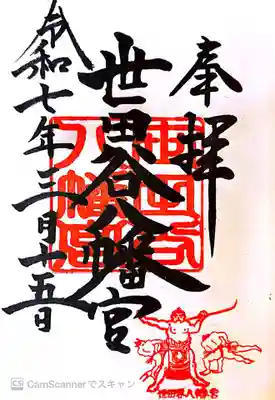 奉拝
世田谷八幡宮
令和七年三月十五日
世田谷
八幡宮
世田谷八幡宮
CS CamScannerでスキャン